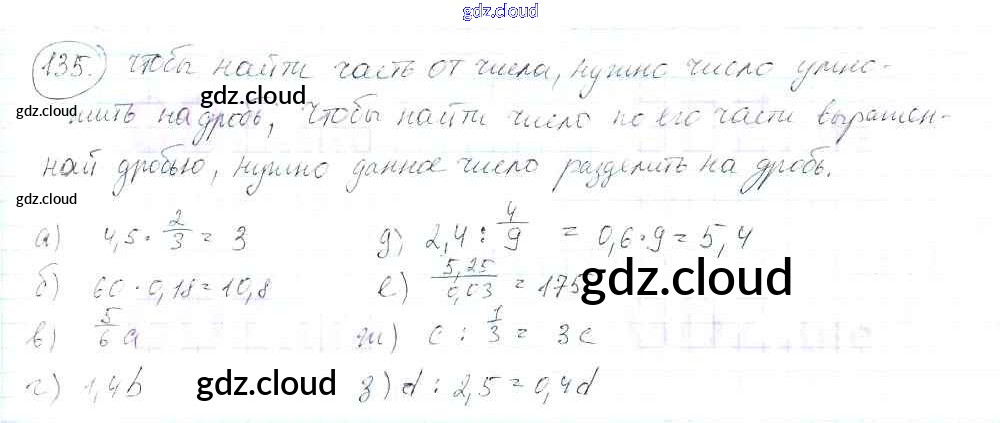 gdz.cloud
135.) Чтобы найти часть от числа, нужно число умно-
gdz.cloud
gdz.cloud
жить на дробь, Чтобы найти число по его части выражен-
ной дробью, нужно данное число разделить на дробь.
gdz.cloud
а) 4,5 · 2/3 = 3
д) 2,4 : 4/9 = 0,6·9 = 5,4
б) 60 · 0,18 = 10,8
е) 5,25/0,03 = 175
gdz.cloud
в) 5/6 a
ж) c : 1/3 = 3c
г) 1,4b
gdz.cloud
з) d : 2,5 = 0,4d